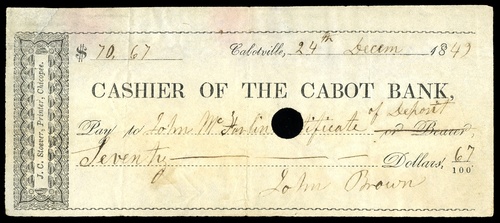 $ 70.67 Cabotville, 24th Decem 1849
CASHIER OF THE CABOT BANK,
of Deposit
Pay to John McFarlin tificate or Bearer,
Seventy Dollars, 67/100
John Brown
J. C. Stoever, Printer, Chicopee.